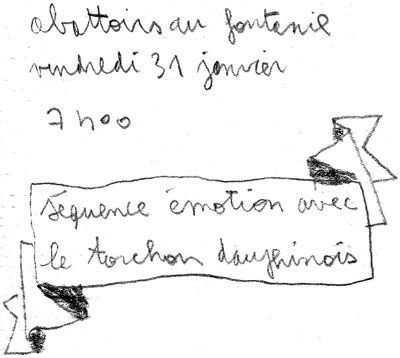 abattoirs du fontanil
vendredi 31 janvier
7h00
séquence émotion avec
le torchon dauphinois